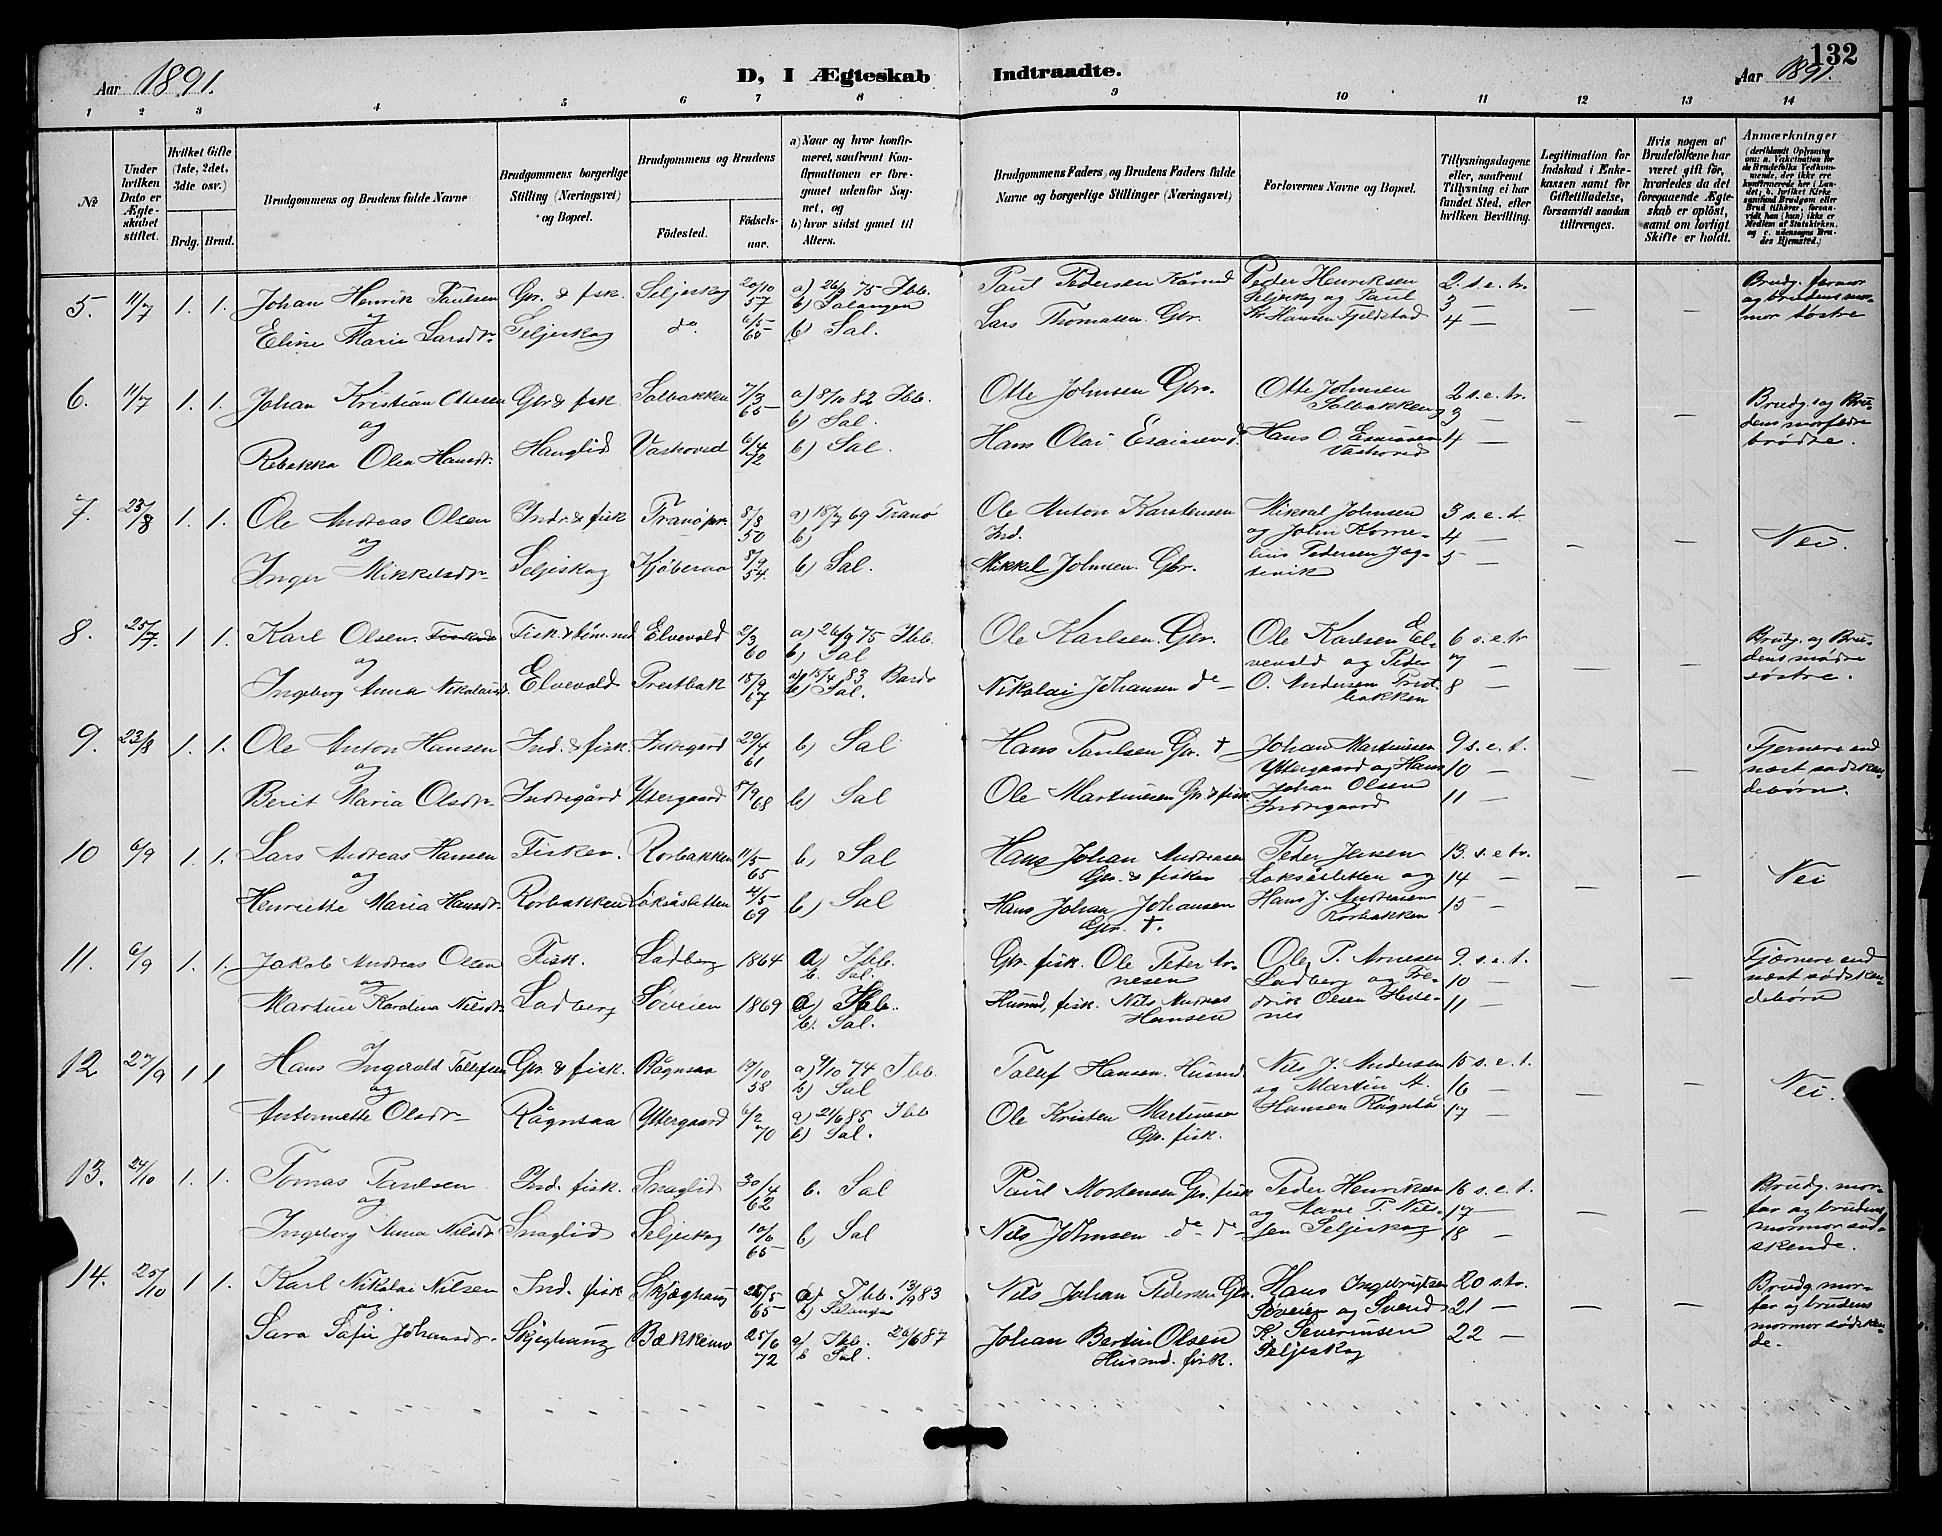 132
Aar 1891.
D, I Ægteskab Indtraadte.
Aar 1891.
1 2 3 4 5 6 7 8 9 10 11 12 13 14
No
Under hvilken Dato er Ægteskabet stiftet.
Hvilket Gifte (1ste, 2det, 3die osv.)
Brdg. Brud.
Brudgommens og Brudens fulde Navne
Brudgommens borgerlige Stilling (Næringsvei) og Bopæl.
Brudgommens og Brudens
Fødested. Fødselsaar.
a) Naar og hvor konfirmeret, saafremt Konfirmationen er foregaaet udenfor Sognet, og
b) hvor sidst gaaet til Alters.
Brudgommens Faders, og Brudens Faders fulde Navne og borgerlige Stillinger (Næringsvei)
Forlovernes Navne og Bopæl.
Tillysningsdagene eller, saafremt Tillysning ei har fundet Sted, efter hvilken Bevilling.
Legitimation for Indskud i Enkekassen samt for Giftetilladelse, forsaavidt saadan tiltrænges.
Hvis nogen af Brudefolkene har været gift før, hvorledes da det foregaaende Ægteskab er opløst, samt om lovligt Skifte er holdt.
Anmærkninger (deriblandt Oplysning om: a. Vakcination for de Brudefolks Vedkommende, der ikke ere konfirmerede her i Landet; b. hvilket Kirkesamfund Brudgom eller Brud tilhører, forsaavidt han (hun) ikke er Medlem af Statskirken, og c. udensogns Brudes Hjemsted.)
5. 11/7 1. 1. Johan Henrik Paulsen Gbr. & fisk. Seljeskog 20/10 57 a) 26/9 75 Ibb. b) Salangen
og
Eline Marie Larsdr. Seljeskog do 6/5 65 b) Sal.
Paul Pedersen
Lars Thomasen Gbr.
Peder Henriksen
Seljeskog og Paul
Hansen Fjeldstad
2. s. e. tr.
3 —
4 —
Brudg. farmor
og brudens mor-
mor søstre
6. 11/7 1. 1. Johan Kristian Ottesen Gbr & fisk Solbakken 7/3 65 a) 8/10 82 Ibb. b) Sal.
og
Rebekka Olea Hansdr. Hanglid Vashoved 6/4 72 b) Sal.
Otte Johnsen Gbr.
Hans Olai Esaiasen d.
Otte Johnsen
Solbakken
Hans O. Esaiasen
Vashoved
2 s. e. tr.
3 —
4 —
Brudg. og Bru-
dens morfedre
brødre.
7. 23/8 1. 1. Ole Andreas Olsen Indr & fisk Tranø 8/8 50 a) 18/7 69 Tranø b)
og
Inger Mikkelsdr. Seljeskog Kjøberaa 8/9 54. b) Sal.
Ole Anton Karstensen
Ind.
Mikkel Johnsen. Gbr.
Mikkal Johnsen
og John Korne-
lius Pedersen Jæg-
tevik
3 s. e. t.
4 —
5 —
Nei.
8. 25/7. 1 1. Karl Olsen. Elvevold 2/3 60 a) 26/9 75 Ibb. b) Sal
og
Ingeborg Anna Nikolaisd. Elvevold Prestbak 18/9 67 a) 15/4 83 Bardo b) Sal.
Ole Karlsen. Gbr.
Nikolai Johansen do —
Ole Karlsen El-
vevold og Peder
O. Andersen Prest-
bakken
6 s. e. tr
7 —
8 —
Brudg. og Bru-
dens mødre
søstre.
9. 23/8 1. 1. Ole Anton Hansen Ind. & fisk. Indregard 29/4 61 b) Sal
og
Berit Maria Olsdr. Indregård Yttergaard 8/9 68 b) Sal
Hans Paulsen Gbr. †
Ole Martinesen Gbr & fisk
Johan Martinesen
Yttergaard og Hans
Johan Olsen
Indregaard
9 s. e. t.
10 —
11 —
Fjernere end
næst sødsken-
debørn.
10 6/9 1. 1. Lars Andreas Hansen Fisker. Rorbakken 11/5 65 b) Sal
og
Henriette Maria Hansdr. Rorbakken Løksåsletten 4/5 69 b) Sal
Hans Johan Andreasen
Gbr. & fisker
Hans Johan Johansen
Gbr. †.
Peder Jensen
Løksåsletten og
Hans J. Andreasen
Rorbakken
13. s. e tr.
14 —
15 —
Nei
11. 6/9 1. 1. Jakob Andreas Olsen Fisk. Ladberg 1864 a) Ibb. b. Sal.
og
Martine Karolina Nilsdr. Ladberg Søveien 1869 a) Ibb. b. Sal.
Gbr. fisk. Ole Peter Ar-
nesen
Husmd, fisk. Nils Andreas
Hansen
Ole P. Arnesen
Ladberg og Fre-
drik Olsen
9. s. e. t.
10 —
11 —
Fjærnere end
næst sødsken-
debørn
12 27/9 1 1 Hans Ingvald Tollefsen Gbr. & fisk. Rågnsaa 19/10 58 a) 9/10 74 Ibb. b) Sal
og
Antonette Olsdr. Rågnsaa Yttergaard 6/2 70 a) 21/6 85 Ibb b) Sal.
Tollef Hansen. Husmd.
Ole Kristen Martinesen
Gbr. fisk.
Nils J. Andersen
og Martin A.
Hansen Rågnså
15 s. e. t.
16 —
17 —
Nei.
13. 24/10 1. 1. Tomas Paulsen Ind. fisk. Snaglid 30/4 62 b. Sal
og
Ingeborg Anna Nilsdr. Snaglid Seljeskog 10/10 65 b) Sal
Paul Mortensen Gbr. fisk
Nils Johnsen do do —
Peder Henriksen
og Aane P. Nils-
sen Seljeskog
16 s. e. t.
17 —
18 —
Brudg. mor-
far og brudens
mormor sød-
skende.
14. 25/10 1 1. Karl Nikolai Nilsen Ind. fisk Skjæghaug 28/5 65 a) Ibb. 13/9 83 b) Salangen
og
Sara Sofie Johansdr. Skjæghaug Bækkemo 25/6 72 a) Ibb. 26/6 87 b Sal.
Nils Johan Pedersen Gbr.
Johan Bertin Olsen
Husmd. fisk.
Hans Ingebrigtsen
Søveien og Svend
K. Severinsen
Seljeskog
20 s. tr.
21 —
22 —
Brudg. mor-
far og brudens
mormor sødsken-
de.